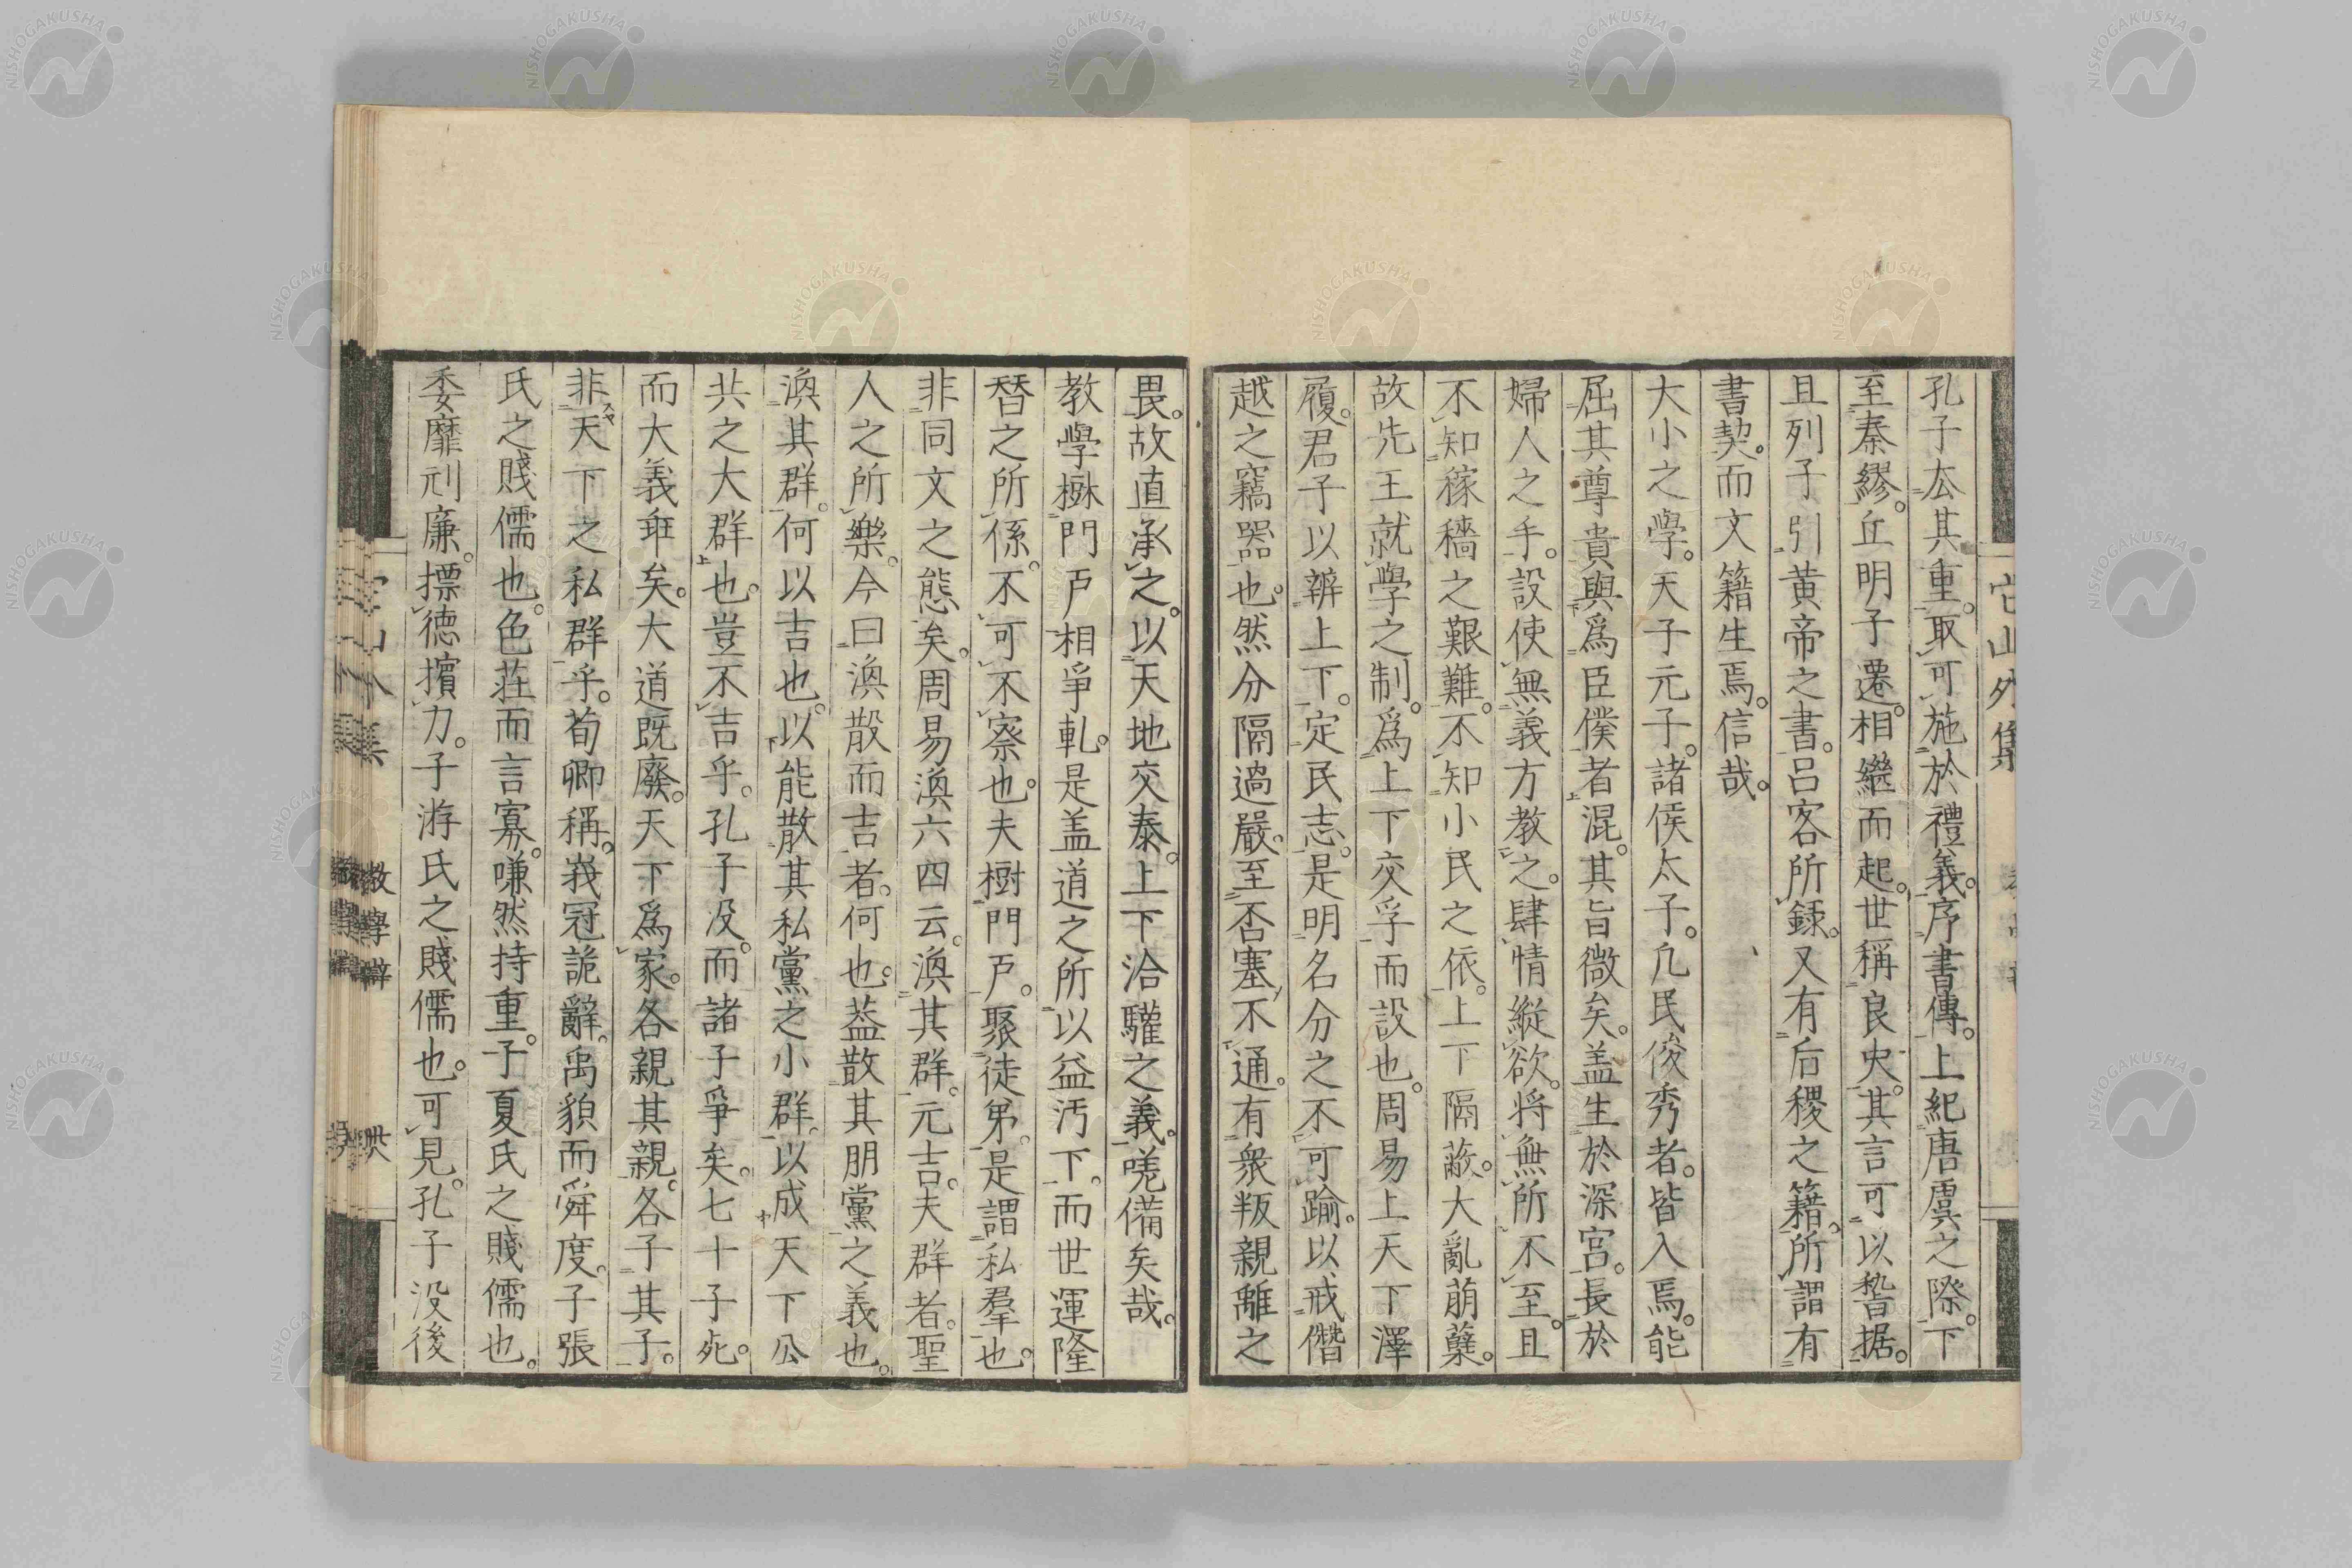 孔子厺其重。取可施於禮義。序書傳。上紀唐虞之際。下
至秦繆。丘明子遷。相繼而起。世稱良史。其言可以嵇据。
且列子引黃帝之書。呂客所錄。又有后稷之籍。所謂有
書契。而文籍生焉。信哉。
大小之學。天子元子。諸侯太子。凢民俊秀者。皆入焉。能
屈其尊貴與爲臣僕者混。其旨微矣。盖生於深宮。長於
婦人之手。設使無義方教之。肆情縱欲。將無所不至。且
不知稼穡之艱難。不知小民之依。上下隔蔽。大亂萠蘖。
故先王就學之制。爲上下交孚而設也。周易上天下澤
履。君子以辨上下。定民志。是明名分之不可踰。以戒僭
越之竊器也。然分隔過嚴。至否塞不通。有衆叛親離之
畏。故直承之。以天地交泰。上下洽驩之義。嗟備矣哉。
教學樹門戸相爭軋。是盖道之所以益汚下。而世運隆
替之所係。不可不察也。夫樹門戸。聚徒弟。是謂私羣也。
非同文之態矣。周易渙六四云。渙其群。元吉。夫群者。聖
人之所樂。今曰渙散而吉者。何也。盖散其朋黨之義也。
渙其群。何以吉也。以能散其私黨之小群。以成天下公
共之大群也。豈不吉乎。孔子没。而諸子爭矣。七十子死。
而大義乖矣。大道既廢。天下爲家。各親其親。各子其子。
非天下之私群乎。荀卿稱。峩冠詭辭。禹貌而舜度。子張
氏之賤儒也。色莊而言寡。嗛然持重。子夏氏之賤儒也。
委靡刓廉。摽德擯力。子游氏之賤儒也。可見。孔子没後
它山外集
教學辯